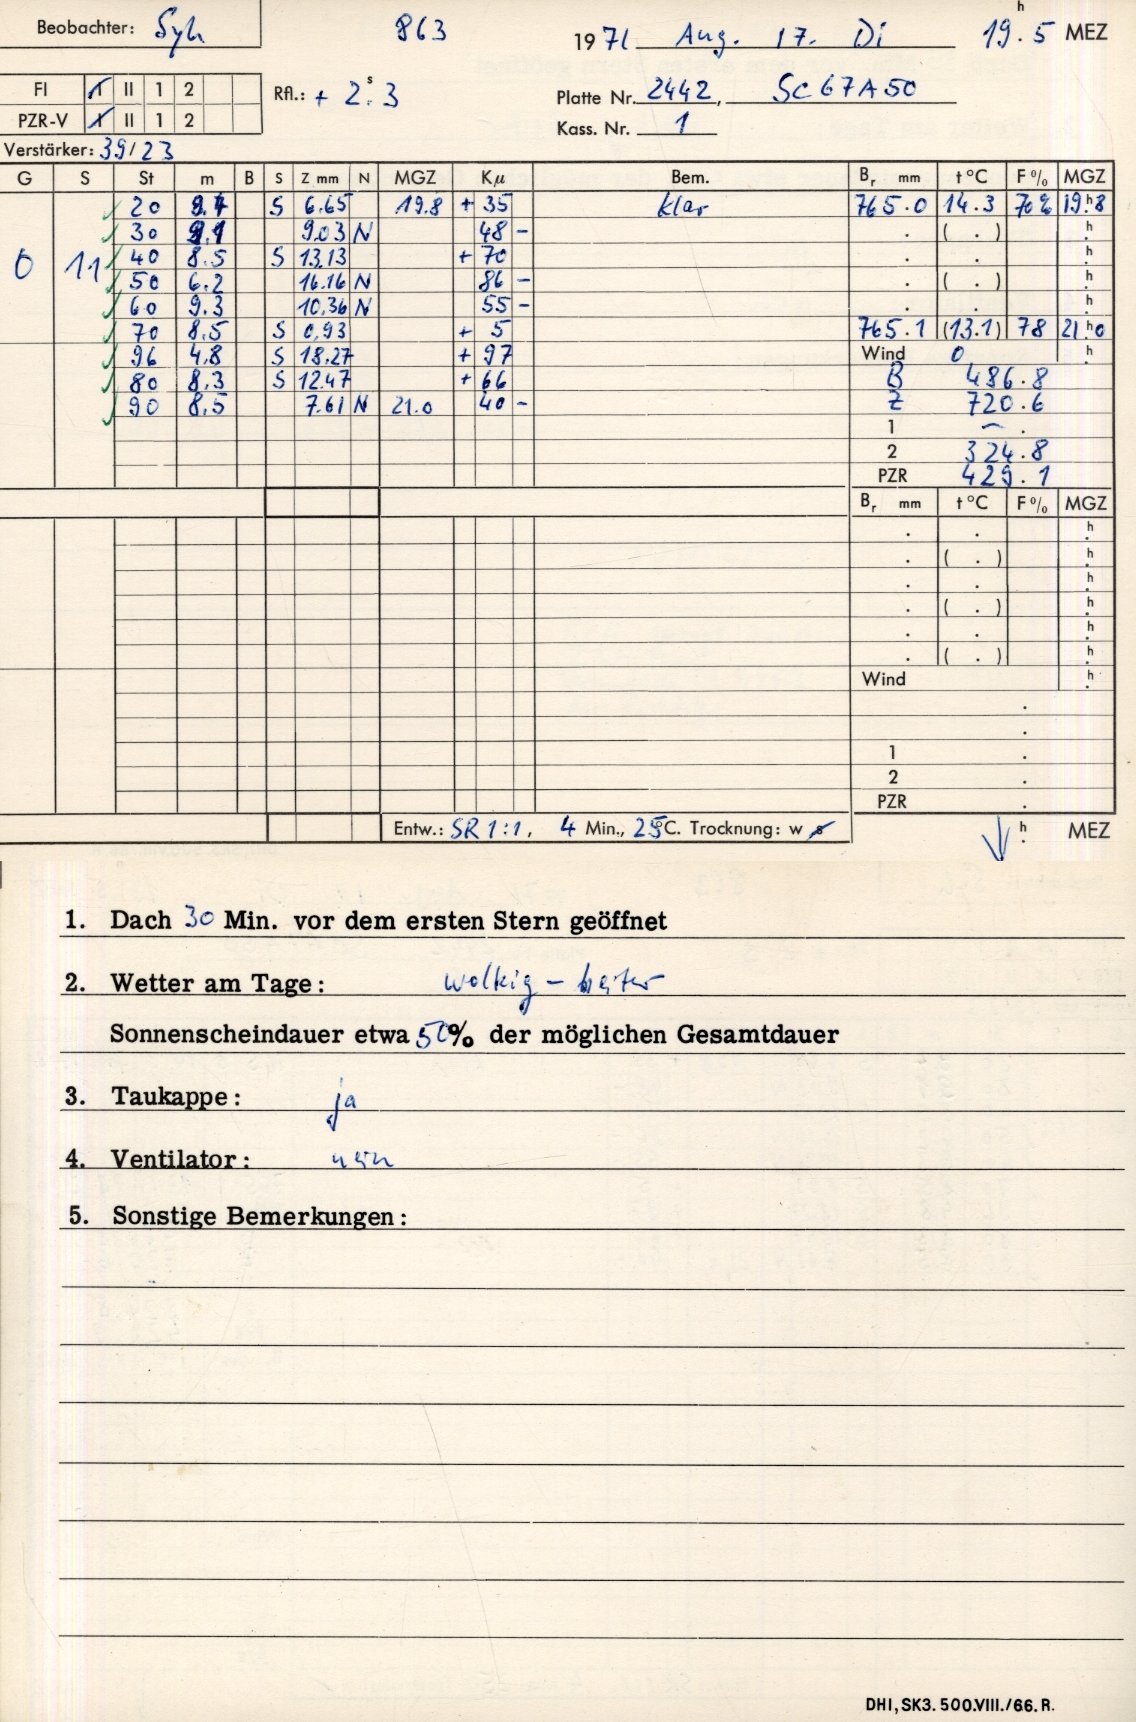 Beobachter: Syh 863 1971 Aug. 17. Di 19h.5 MEZ
FI I II 1 2 Rfl.: + 2s.3 Platte Nr. 2442, SC67A50
PZR-V I II 1 2 Kass. Nr. 1
Verstärker: 39/23
G S St m B S Z mm N MGZ Kμ Bem. Br mm t°C F% MGZ
20 S 6.65 19.8 + 35 klar 765.0 14.3 70% 19h.8
30 9.03 N 48 - . ( . ) h.
0 11 40 8.5 S 13.13 + 70 . . h.
50 6.2 16.16 N 86 - . ( . ) h.
60 9.3 10.36 N 55 - . . h.
70 8.5 S 0.93 + 5 765.1 (13.1) 78 21h.0
96 4.8 S 18.27 + 97 Wind 0 h.
80 8.3 S 12.47 + 66 B 486.8
90 8.5 7.61 N 21.0 40 - Z 720.6
1 – .
2 324.8
PZR 429.1
Br mm t°C F% MGZ
. . h.
. ( . ) h.
. . h.
. ( . ) h.
. . h.
. ( . ) h.
Wind h.
.
.
1 .
2 .
PZR .
Entw.: SR 1:1, 4 Min., 25°C. Trocknung: w s h. MEZ
1. Dach 30 Min. vor dem ersten Stern geöffnet
2. Wetter am Tage: wolkig – heiter
Sonnenscheindauer etwa 50% der möglichen Gesamtdauer
3. Taukappe: ja
4. Ventilator: nein
5. Sonstige Bemerkungen:
DHI, SK3. 500.VIII./66. R.